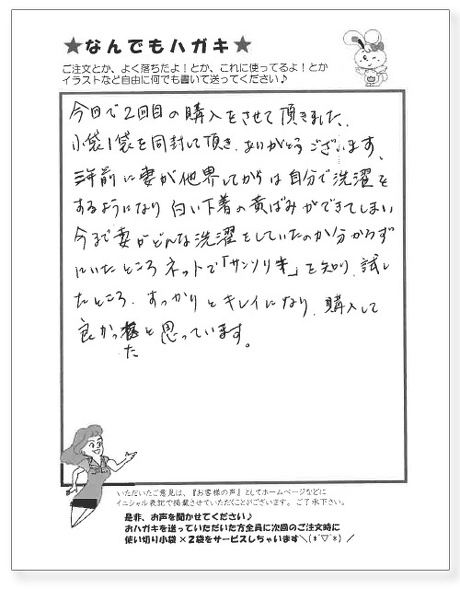 ★なんでもハガキ★
ご注文とか、よく落ちたよ!とか、これに使ってるよ!とか
イラストなど自由に何でも書いて送ってください♪
今回で2回目の購入をさせて頂きました、
小袋1袋を同封して頂き、ありがとうございます、
三年前に妻が他界してからは自分で洗濯を
するようになり白い下着の黄ばみができてしまい
今まで妻がどんな洗濯をしていたのか分からず
にいたところネットで「サンソリ隊」を知り、試し
たところ、すっかりとキレイになり、購入して
良かったと思っています。
いただいたご意見は、『お客様の声』としてホームページなどに
イニシャル表記で掲載させていただくことがございます。ご了承下さい。
是非、お声を聞かせてください♪
おハガキを送っていただいた方全員に次回のご注文時に
使い切り小袋×2袋をサービスしちゃいます＼(*´▽`*)／